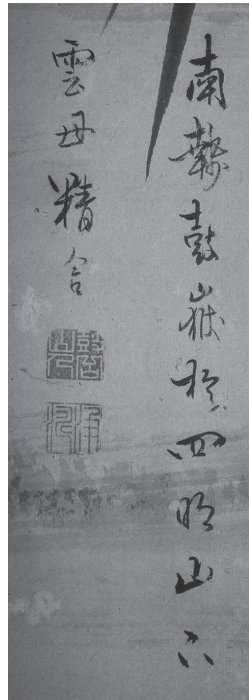 南鼓嶽於四明山下
雲母精舍